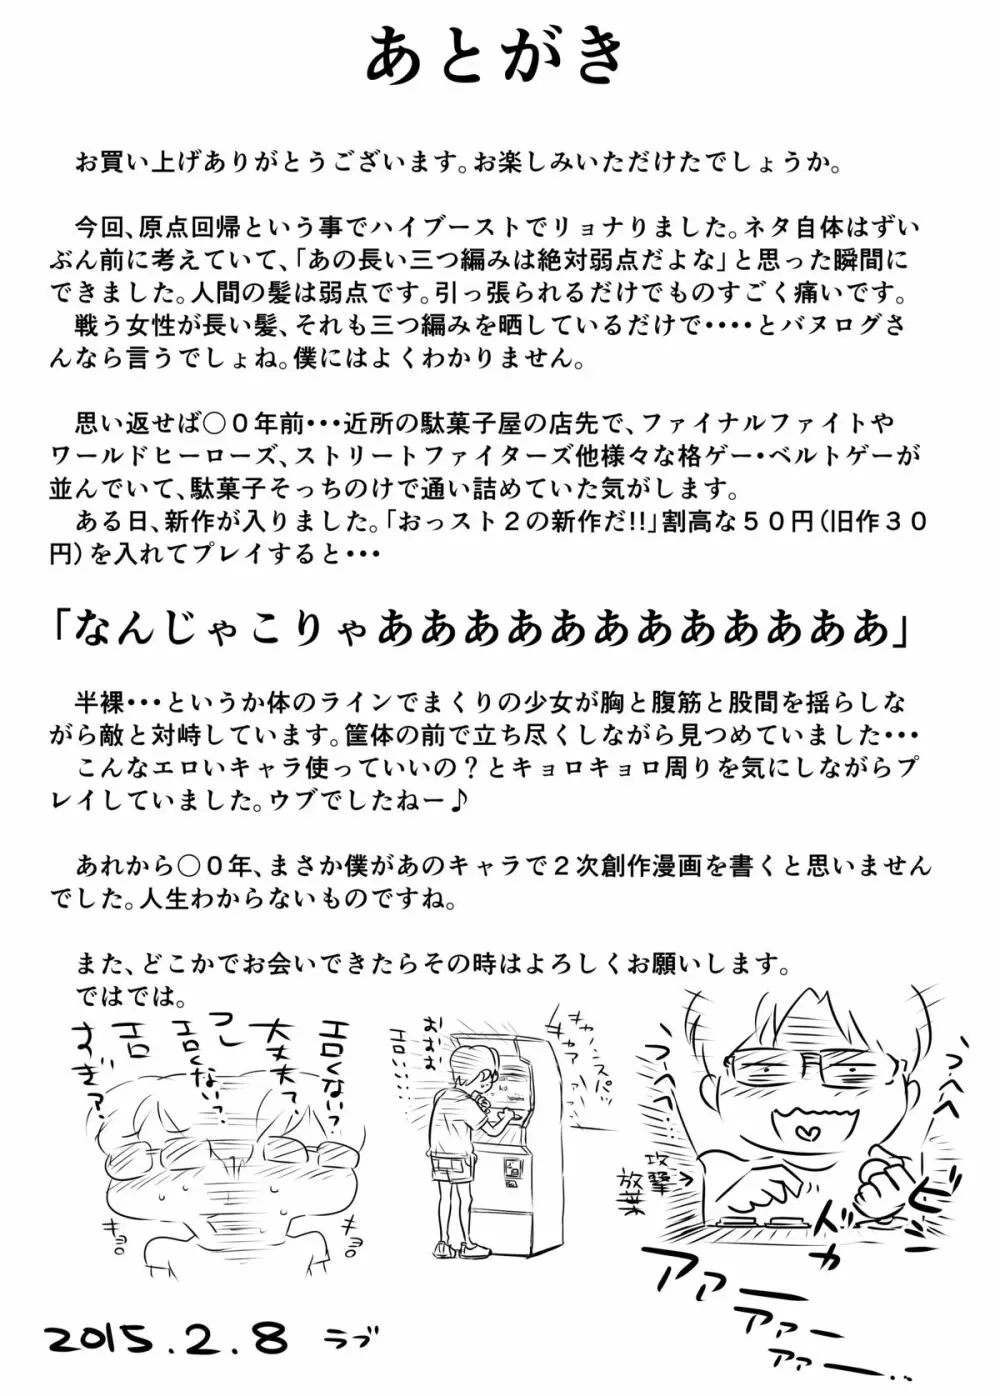 あとがき
お買い上げありがとうございます。お楽しみいただけたでしょうか。
今回、原点回帰という事でハイブーストでリョナりました。ネタ自体はずい
ぶん前に考えていて、「あの長い三つ編みは絶対弱点だよな」と思った瞬間に
できました。人間の髪は弱点です。引っ張られるだけでものすごく痛いです。
戦う女性が長い髪、それも三つ編みを晒しているだけで・・・・とバヌログさ
んなら言うでしょね。僕にはよくわかりません。
思い返せば○０年前・・・近所の駄菓子屋の店先で、ファイナルファイトや
ワールドヒーローズ、ストリートファイターズ他様々な格ゲー・ベルトゲーが
並んでいて、駄菓子そっちのけで通い詰めていた気がします。
ある日、新作が入りました。「おっスト２の新作だ!!」割高な５０円（旧作３０
円）を入れてプレイすると・・・
「なんじゃこりゃああああああああああああ」
半裸・・・というか体のラインでまくりの少女が胸と腹筋と股間を揺らしな
がら敵と対峙しています。筐体の前で立ち尽くしながら見つめていました・・・
こんなエロいキャラ使っていいの？とキョロキョロ周りを気にしながらプ
レイしていました。ウブでしたねー♪
あれから○０年、まさか僕があのキャラで２次創作漫画を書くと思いません
でした。人生わからないものですね。
また、どこかでお会いできたらその時はよろしくお願いします。
ではでは。
エロくない？
大丈夫？
つーし
エロくない？
エロ
すぎ？
キョロ
キョロ
キャノンスパ
キャアァ
おおお
エロい…
っへへ
っへへ
攻撃
放棄
ビ
ド
カ
アァー
アァー
アァー..
2015.2.8 ラブ